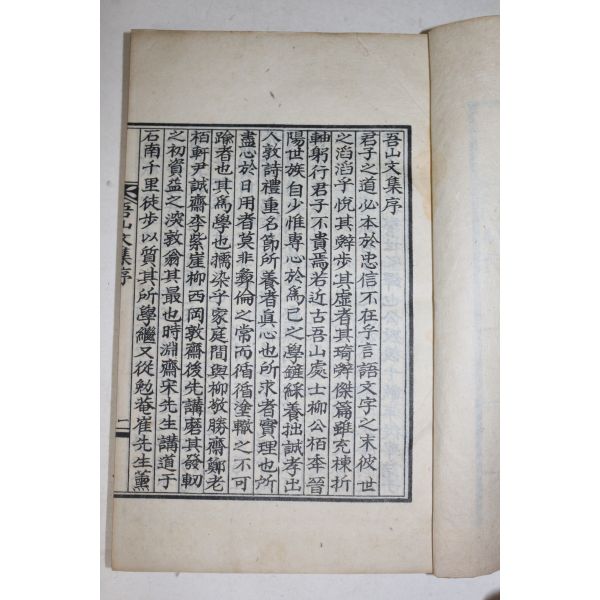 吾山文集序
君子之道必本於忠信不在乎言語文字之末彼世
之滔滔乎悅其辭步其虛者其琦辭傑篇雖充棟折
軸躬行君子不貴焉若近古吾山處士柳公栢夲晉
陽世族自少惟專心於爲己之學鏟綵養拙誠孝出
人敦詩禮重名節所養者眞心也所求者實理也所
盡心於日用者莫非彝倫之常而循循塗轍之不可
踰者也其爲學也擩染乎家庭間與柳敬勝齋鄭老
栢軒尹誠齋李紫崖柳西岡敦齋後先講磨其發軔
之初資益之深敦翁其最也時淵齋宋先生講道于
石南千里徒步以質其所學繼又從勉菴崔先生薰
吾山文集序
一